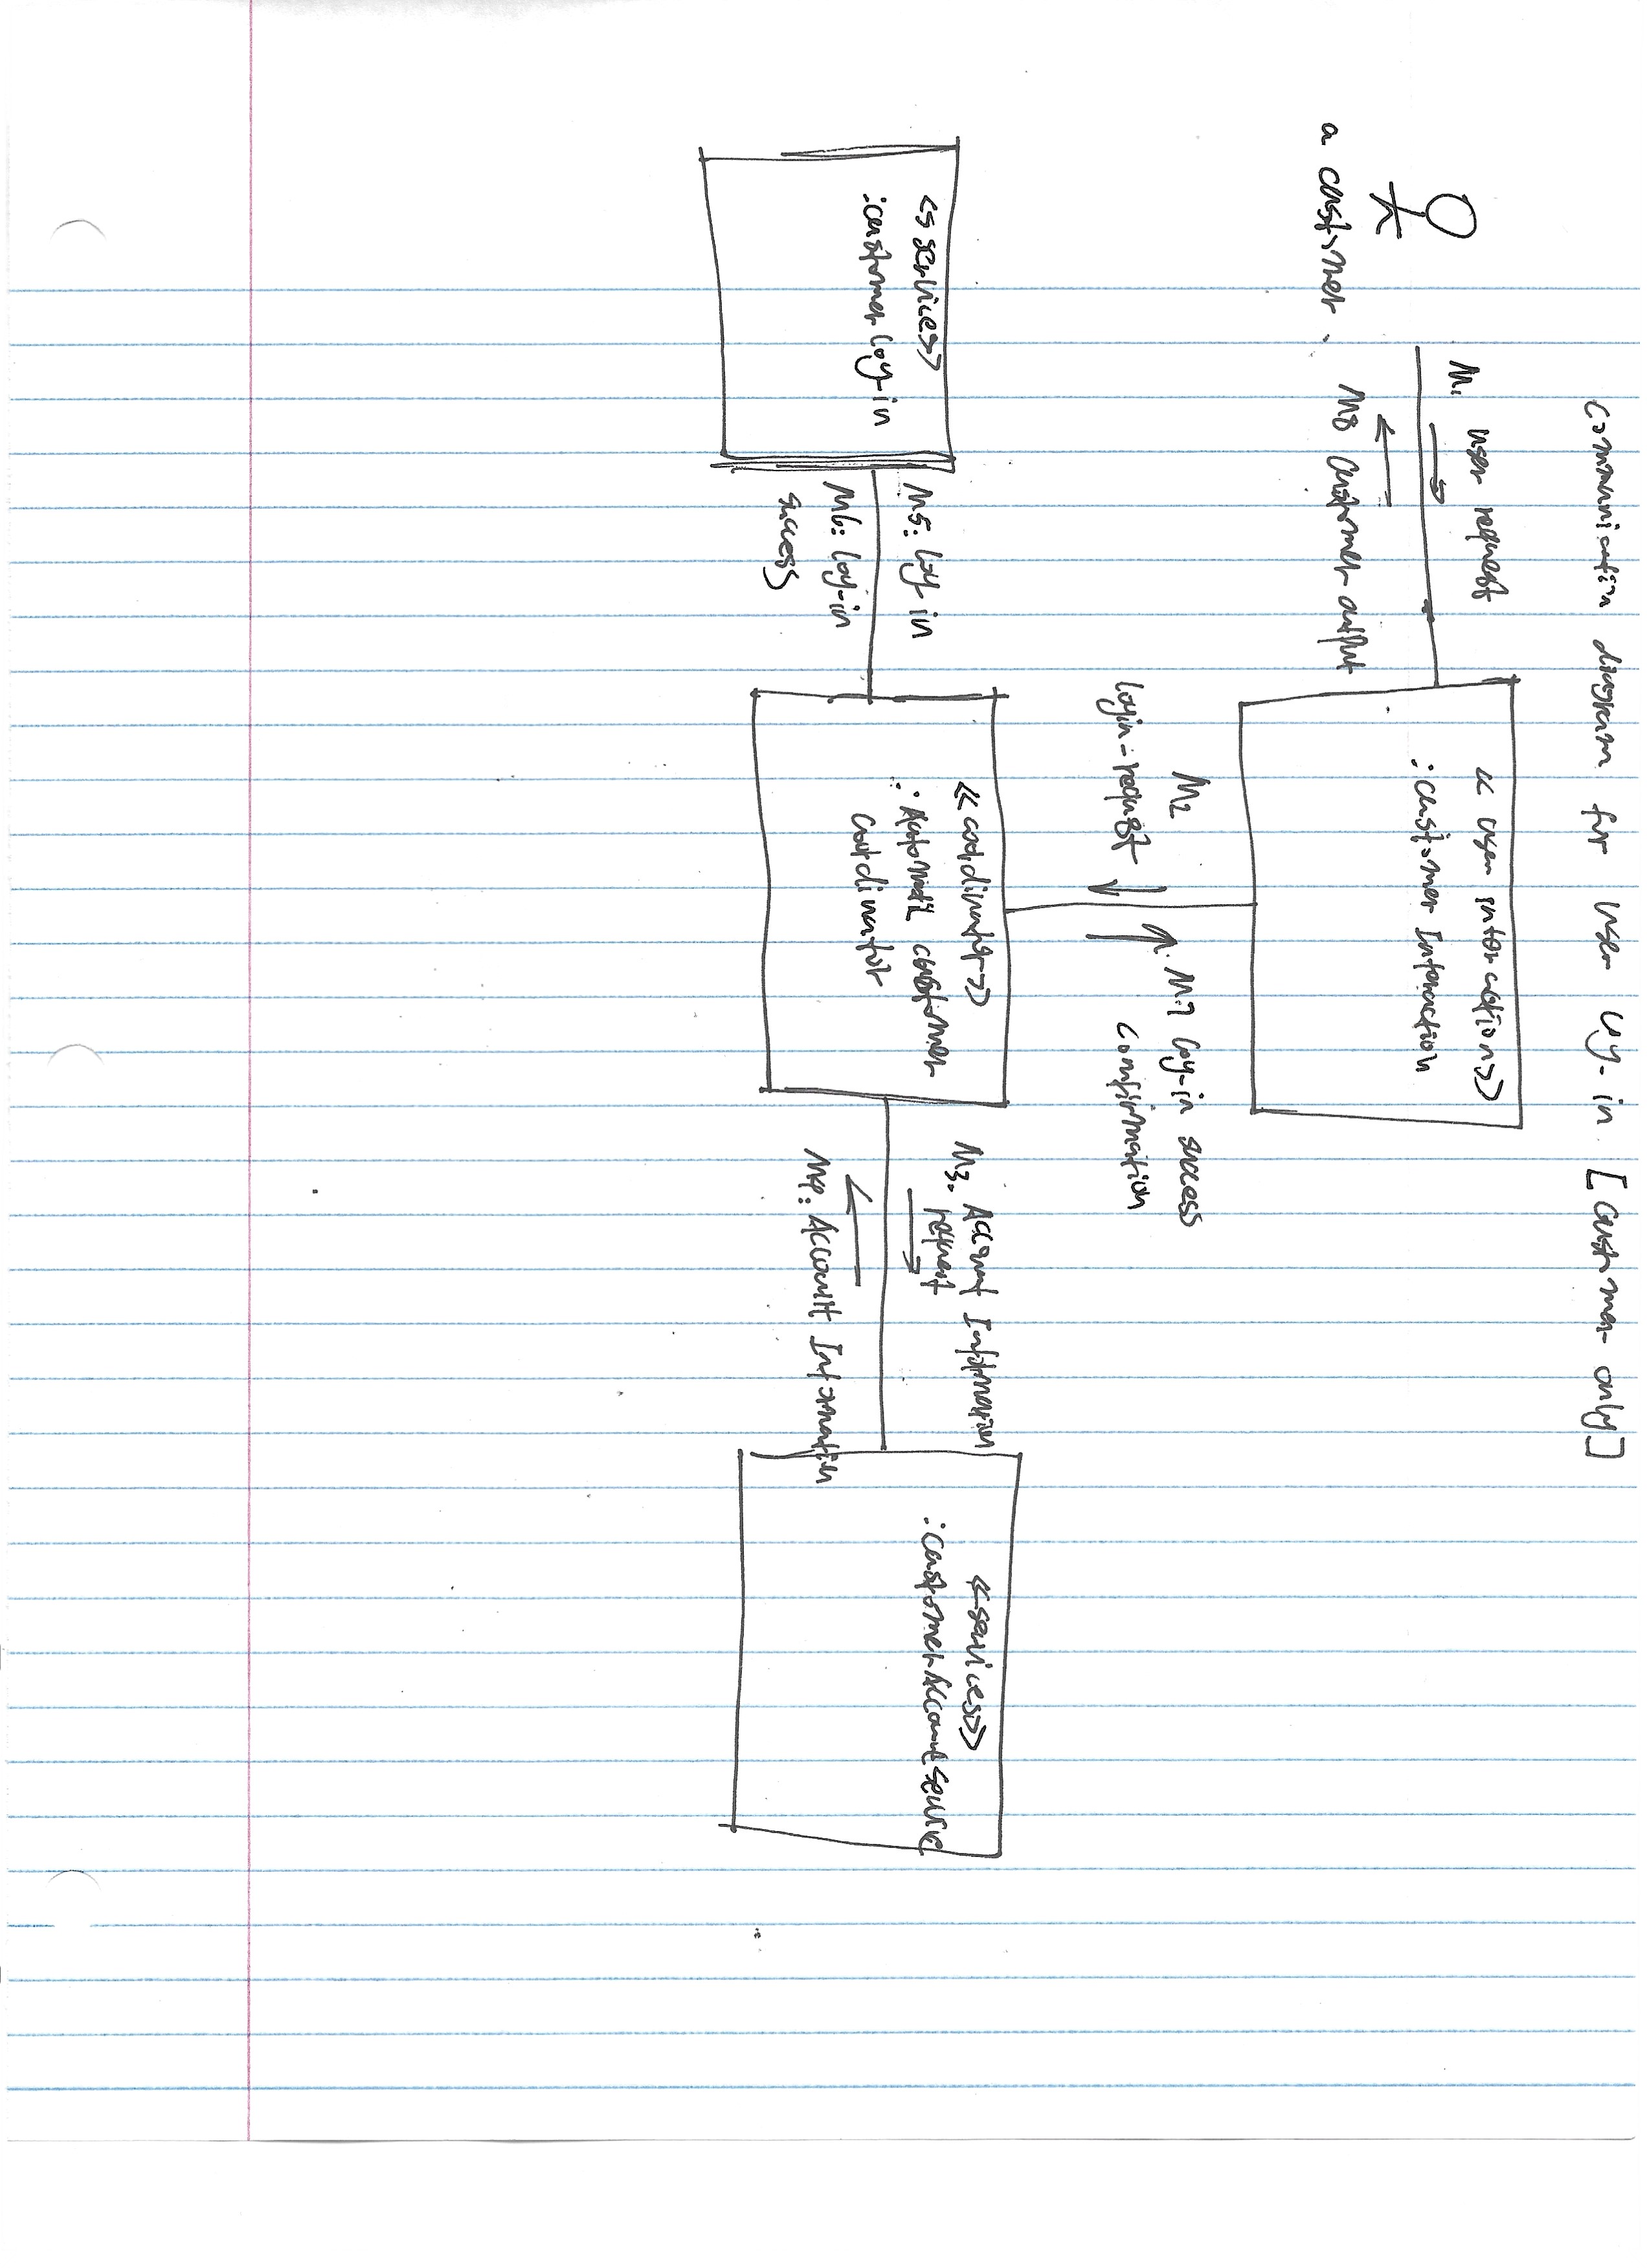 Communication diagram for User log-in [customer only]
M1 user request
<< user interaction >>
:customer Interaction
a customer
M8 customer output
M2
login-request
M7 log-in success
confirmation
<<services>>
:customer log-in
M5: log in
M6: log-in
success
<<coordinator>>
:Automatic customer
coordinator
M3: Account Information
request
M4: Account Information
<<services>>
:customerAccountService